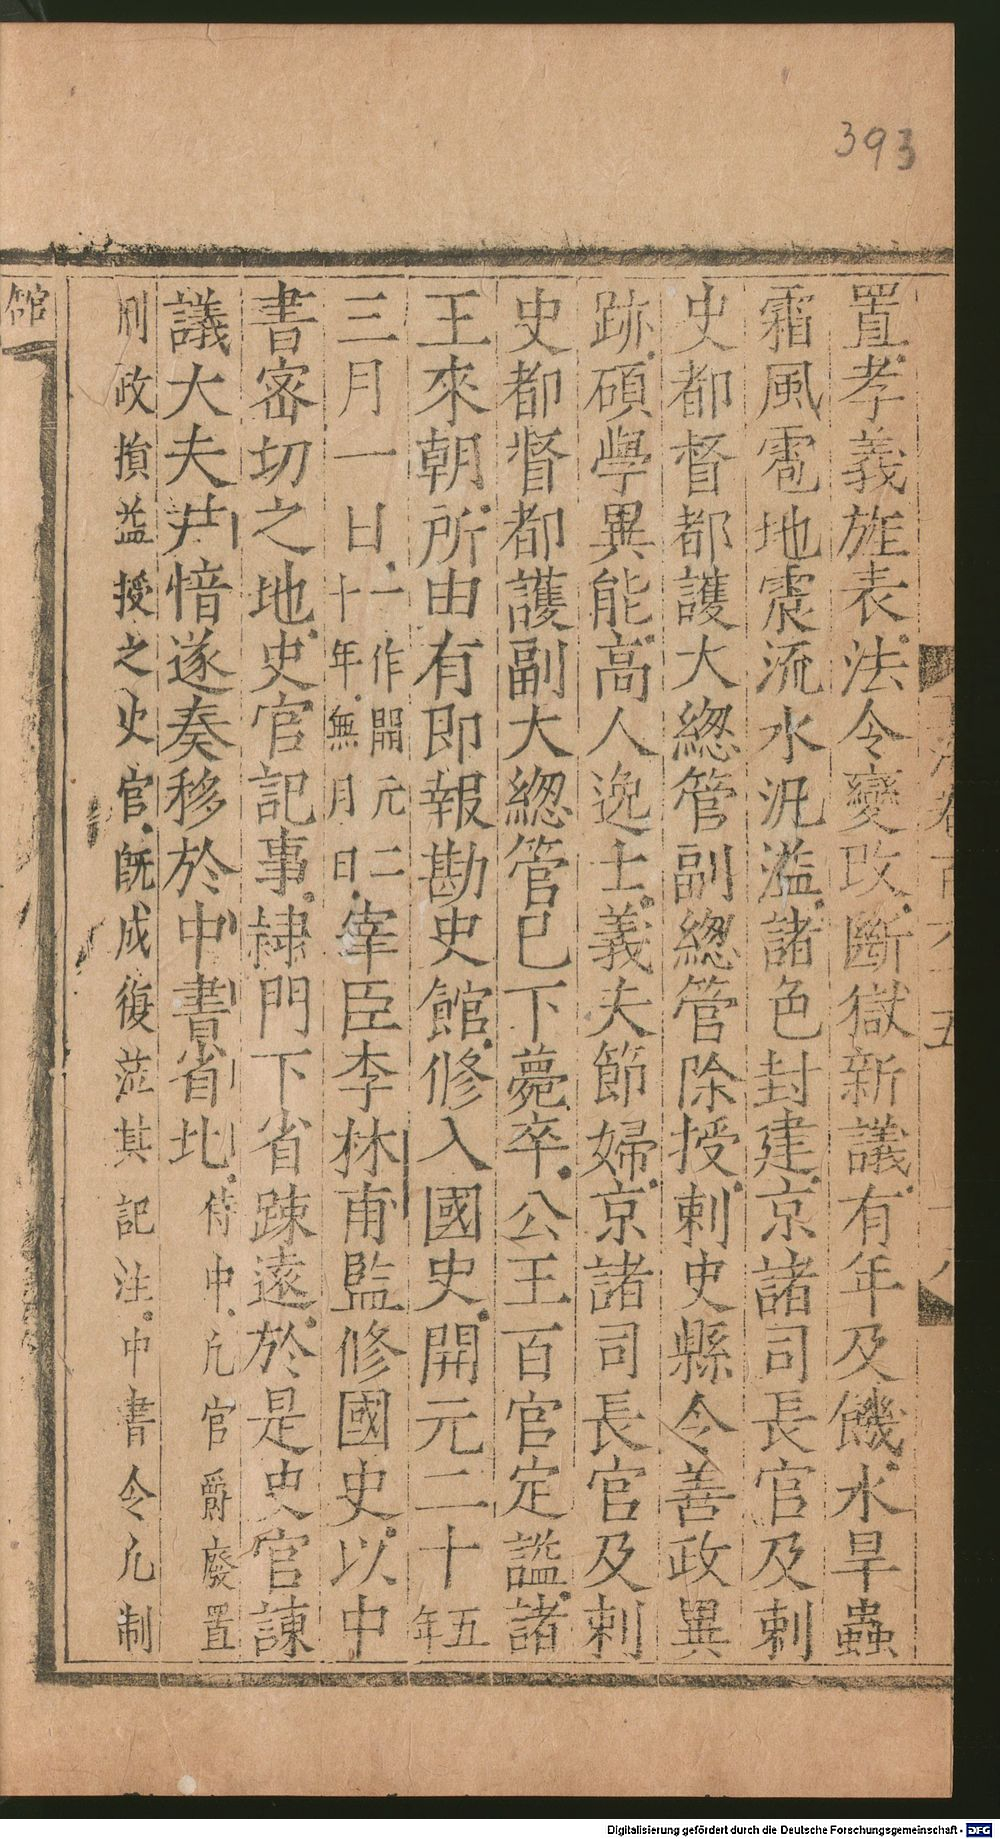 393
置孝義旌表法令變改斷獄新議有年及饑水旱蟲
霜風雹地震流水汎濫諸色封建京諸司長官及刺
史都督都護大緫管副緫管除授刺史縣令善政異
跡碩學異能高人逸士義夫節婦京諸司長官及刺
史都督都護副大緫管已下薨卒公王百官定謚諸
王來朝所由有即報勘史館修入國史開元二十五年
三月一日一作開元二十年無月日宰臣李林甫監修國史以中
書宻切之地史官記事隷門下省踈遠於是史官諫
議大夫尹愔遂奏移於中書省北侍中凡官爵廢置
刑政損益授之史官既成復涖其記注中書令凡制
館
Digitalisierung gefördert durch die Deutsche Forschungsgemeinschaft - DFG